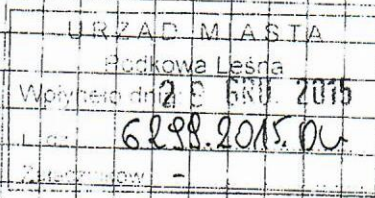 URZĄD MIASTA
Podkowa Leśna
Wpłynęło dnia 2 GRU. 2015
L. dz. 6299.2015.
Załączników -